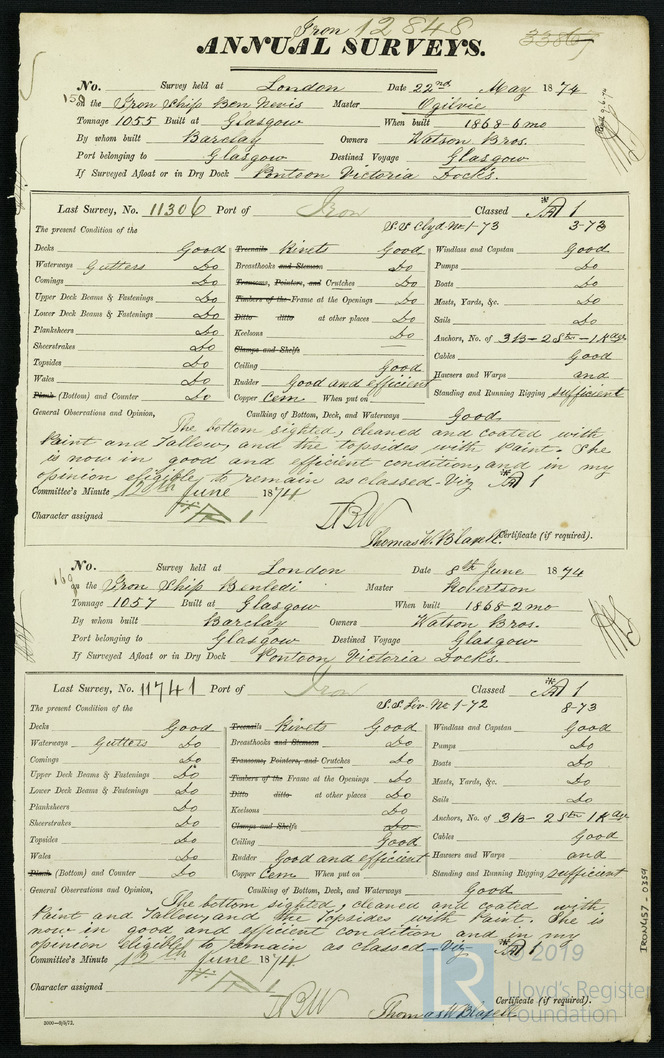 Iron 12848
ANNUAL SURVEYS.
No. Survey held at London Date 22nd May 1874
on the Iron Ship Ben Nevis Master Ogilvie
Tonnage 1055 Built at Glasgow When built 1868-6mo
By whom built Barclay Owners Watson Bros.
Port belonging to Glasgow Destined Voyage Glasgow
If Surveyed Afloat or in Dry Dock Pontoon Victoria Docks.
Last Survey, No. 11306 Port of Iron Classed A 1
The present Condition of the S.S Clyd No 1-73 3-73
Decks Good Treenails Rivets Good Windlass and Capstan Good
Waterways Gutters Do Breasthooks and Stemson Do Pumps Do
Comings Do Transoms, Pointers, and Crutches Do Boats Do
Upper Deck Beams & Fastenings Do Timbers of the Frame at the Openings Do Masts, Yards, &c. Do
Lower Deck Beams & Fastenings Do Ditto ditto at other places Do Sails Do
Planksheers Do Keelsons Do Anchors, No. of 3B-2Stm-1Kdge
Sheerstrakes Do Clamps and Shelfs Cables Good
Topsides Do Ceiling Good Hawsers and Warps and
Wales Do Rudder Good and efficient Standing and Running Rigging sufficient
Plank (Bottom) and Counter Do Copper Cem When put on
General Observations and Opinion, Caulking of Bottom, Deck, and Waterways Good
The bottom sighted, cleaned and coated with
Paint and Tallow, and the topsides with Paint. She
is now in good and efficient condition, and in my
opinion eligible to remain as classed-Viz A 1
Committee's Minute 12th June 1874
Character assigned A 1
Thomas W. Blaxell. Certificate (if required).
No. Survey held at London Date 8th June 1874
on the Iron Ship Benledi Master Robertson
Tonnage 1057 Built at Glasgow When built 1868-2mo
By whom built Barclay Owners Watson Bros.
Port belonging to Glasgow Destined Voyage Glasgow
If Surveyed Afloat or in Dry Dock Pontoon Victoria Docks.
Last Survey, No. 11741 Port of Iron Classed A 1
The present Condition of the S.S Liv. No 1-72 8-73
Decks Good Treenails Rivets Good Windlass and Capstan Good
Waterways Gutters Do Breasthooks and Stemson Do Pumps Do
Comings Do Transoms, Pointers, and Crutches Do Boats Do
Upper Deck Beams & Fastenings Do Timbers of the Frame at the Openings Do Masts, Yards, &c. Do
Lower Deck Beams & Fastenings Do Ditto ditto at other places Do Sails Do
Planksheers Do Keelsons Do Anchors, No. of 3B-2Stm 1Kdge
Sheerstrakes Do Clamps and Shelfs Do Cables Good
Topsides Do Ceiling Good Hawsers and Warps and
Wales Do Rudder Good and efficient Standing and Running Rigging sufficient
Plank (Bottom) and Counter Do Copper Cem When put on
General Observations and Opinion, Caulking of Bottom, Deck, and Waterways Good
The bottom sighted, cleaned and coated with
Paint and Tallow, and the Topsides with Paint. She is
now in good and efficient condition and in my
opinion Eligible to remain as classed-Viz A 1
Committee's Minute 12th June 1874
Character assigned A 1
Thomas W Blaxell Certificate (if required).
2000-8/3/72.
IRON457-0359
© 2019
Lloyd's Register
Foundation